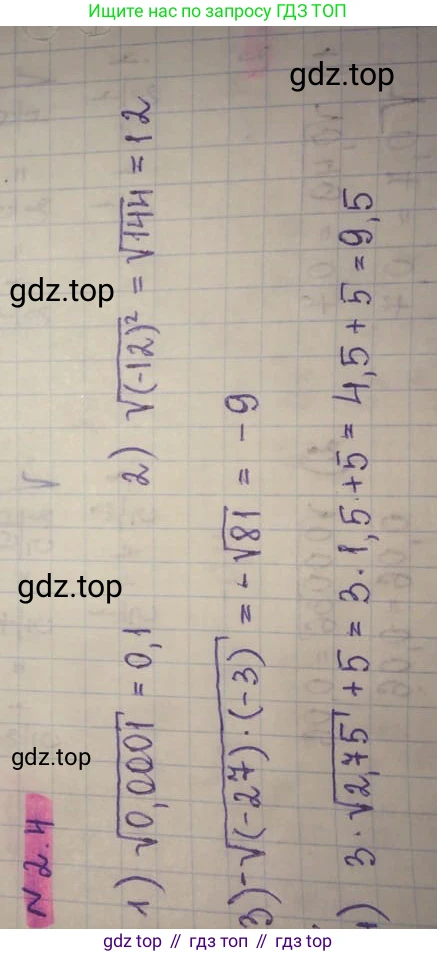 Ищите нас по запросу ГДЗ ТОП
gdz.top
gdz.top
gdz.top
gdz.top
N 2.4
1) √0,0001 = 0,1
2) √(-12)² = √144 = 12
3) -√(-27)·(-3) = -√81 = -9
) 3·√2,75 + 5 = 3·1,5 + 5 = 4,5 + 5 = 9,5
gdz top // гдз топ // gdz.top